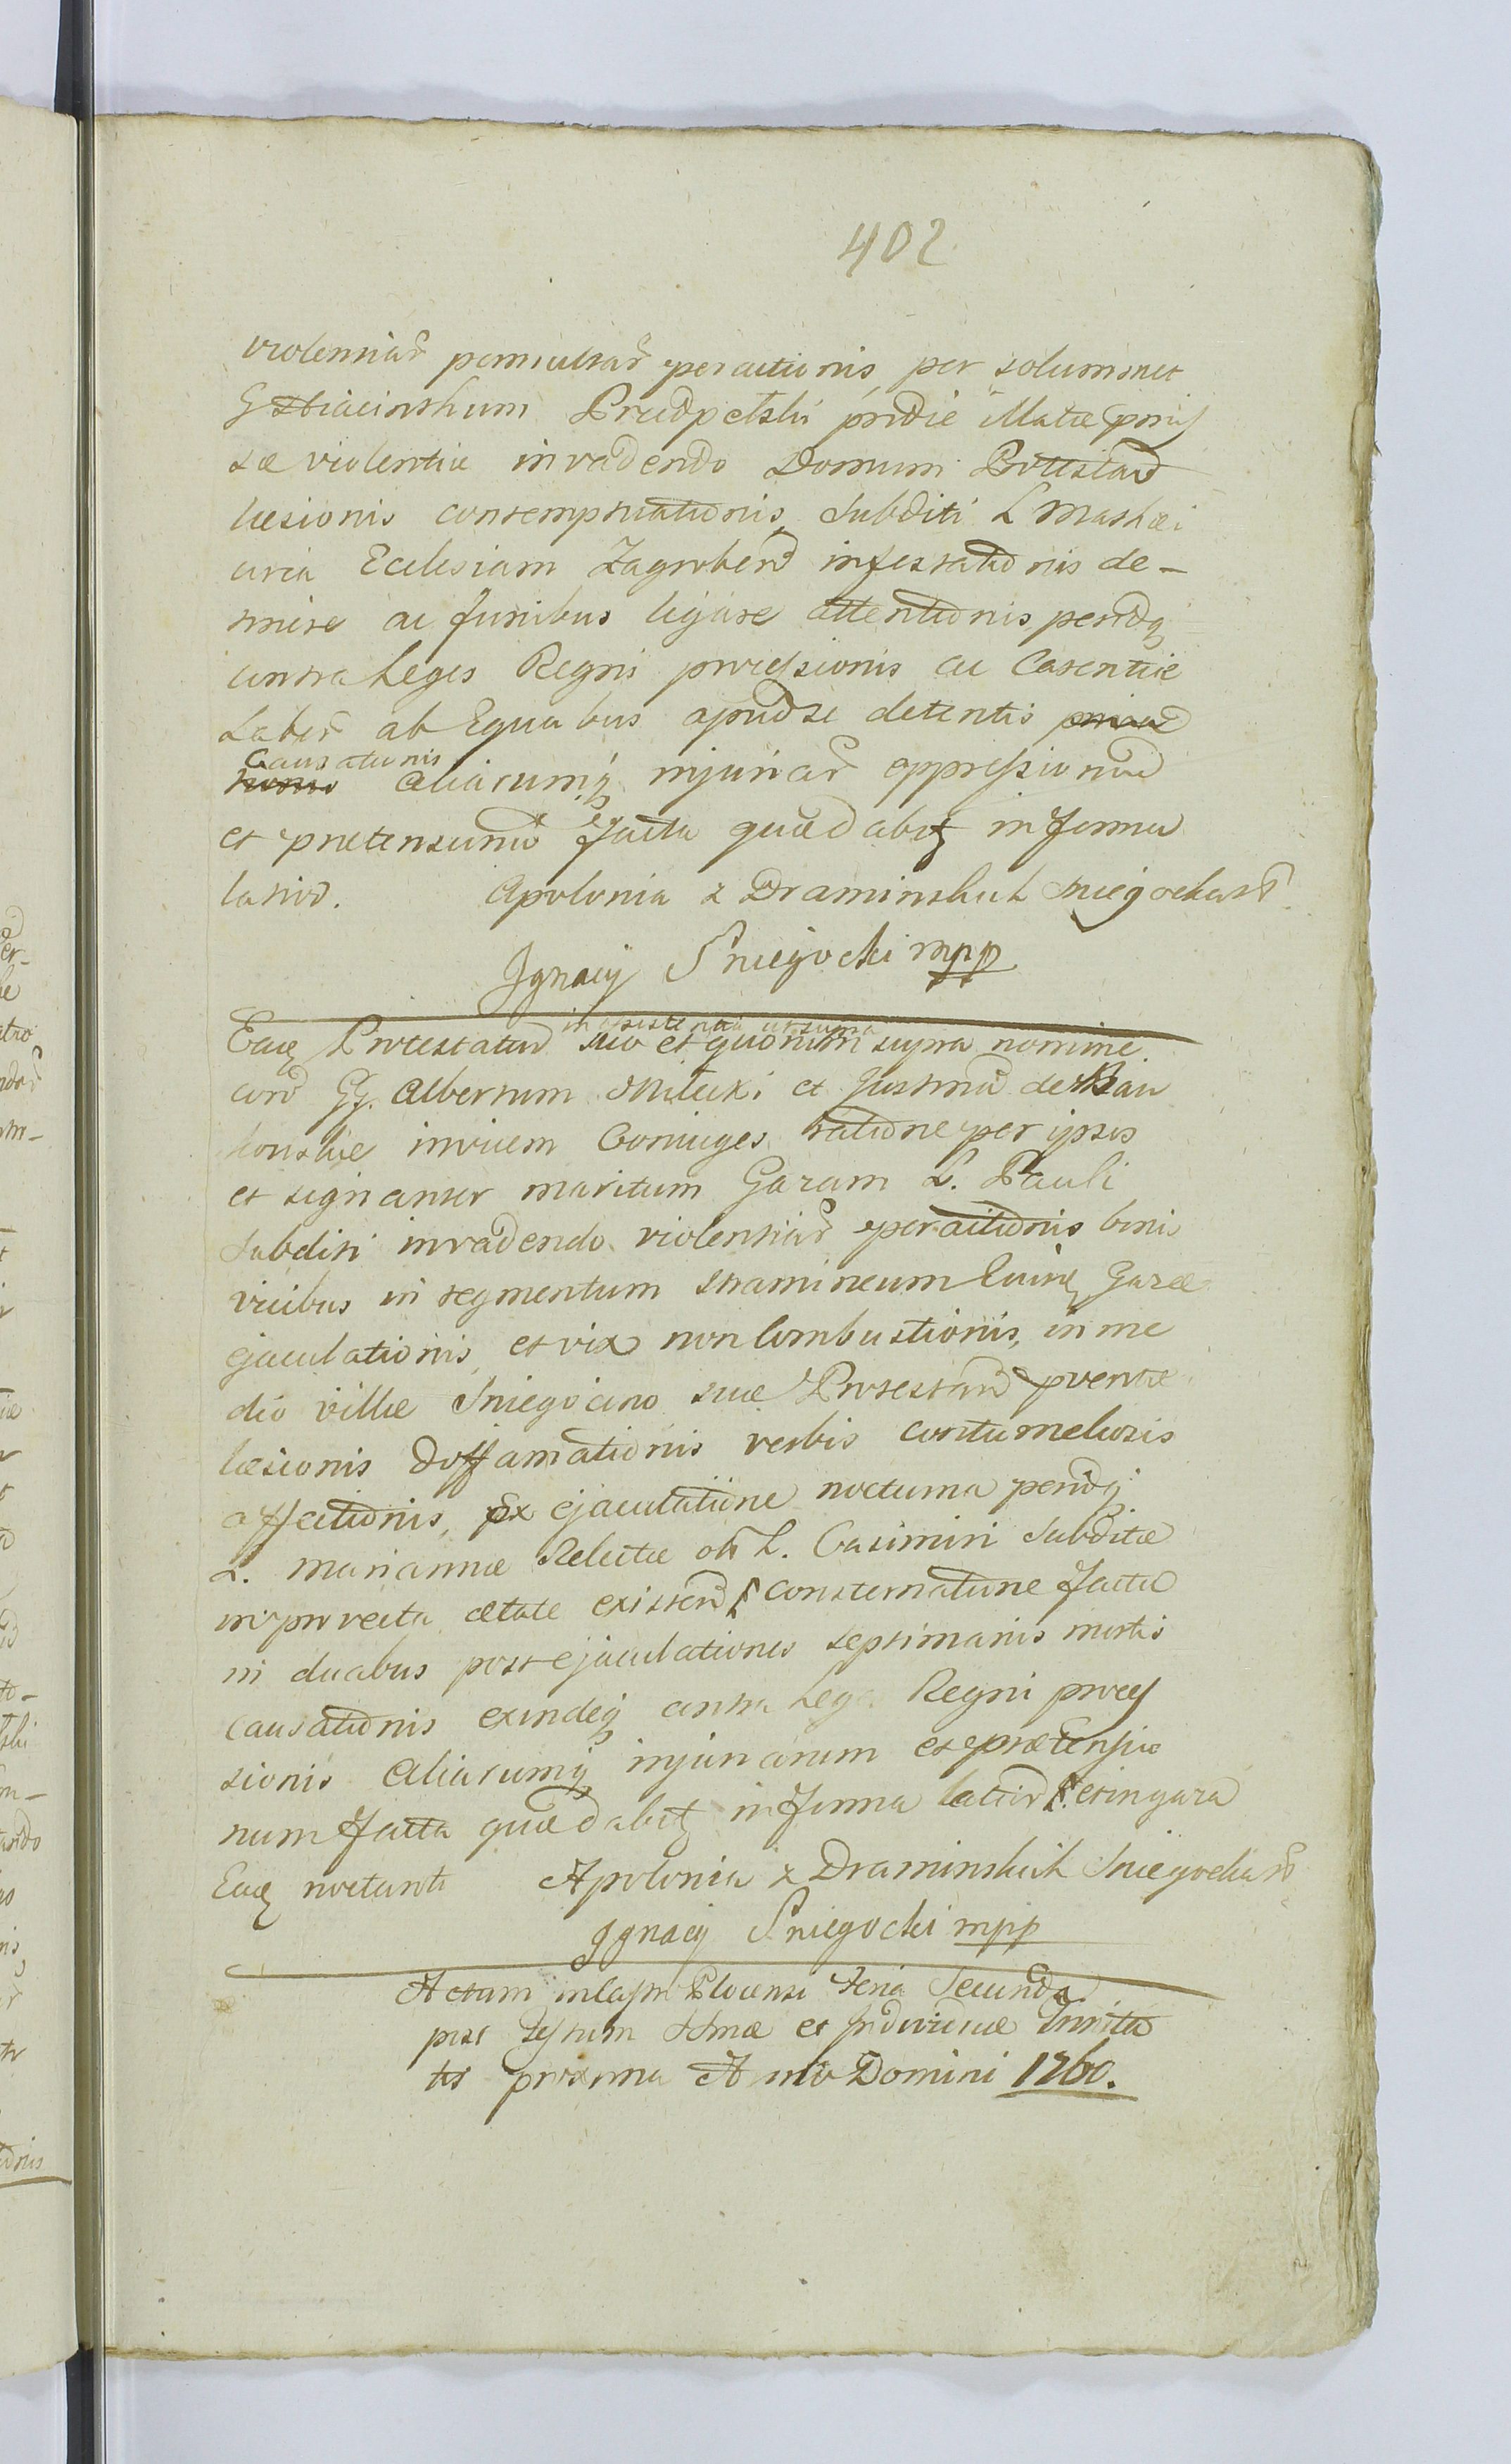 402
violentiar permultar peractionis per solummet
G Hiacinthum Prudpelski pridie illatae
sae violentiae invadendo Domum Prottstand
laesionis contemptuationis Subditi L Mathaei
circa Ecclesiam Zagroben infestationis de-
mire ac funibus ligare attentionis pendq
contra Leges Regni progressionis ac Carentiae
Labor ab Equabus apud se detentis
Causationis
aliarumq injuriar oppressionud
et pretensionu facta quae dabit in forma
latiod. Apolonia z Draminskich Sniegocka
Ignacy Sniegocki mpp
in assistentia ut supra
Eaq Protestatur suo et quorum supra nomine
con GG. Albertum Milecki et Justina de Bar
kouskie invicem Coniuges ratione per ipsos
et signanter maritum Gazam L. Pauli
subditi invadendo violentiar peractionis binis
vicibus in tegmentum stramineum Gazae
ejaculationis et vix non Combustionis, in me
dio villae Sniegocino suae Protestand
laesionis Deffamationis verbis contumeliosis
affectionis, ex ejaculatione nocturna pendq
L. Mariannae Relictae olim L. Casimiri Subditae
in provecta aetate existend consternatione facta
in duabus post ejaculationes septimanis mortis
causationis exindeq contra Leges Regni progres
sionis aliarumq injuriarum et praetensio
num facta quae dabit in forma latiod et in gaza
Eaq nocturnti Apolonia z Draminskich Sniegocka
Ignacy Sniegocki mpp
Actum in Castro Plocensi Feria Secunda
post Festum SSmae et Individuae Trinita
tis proxima Anno Domini 1760.